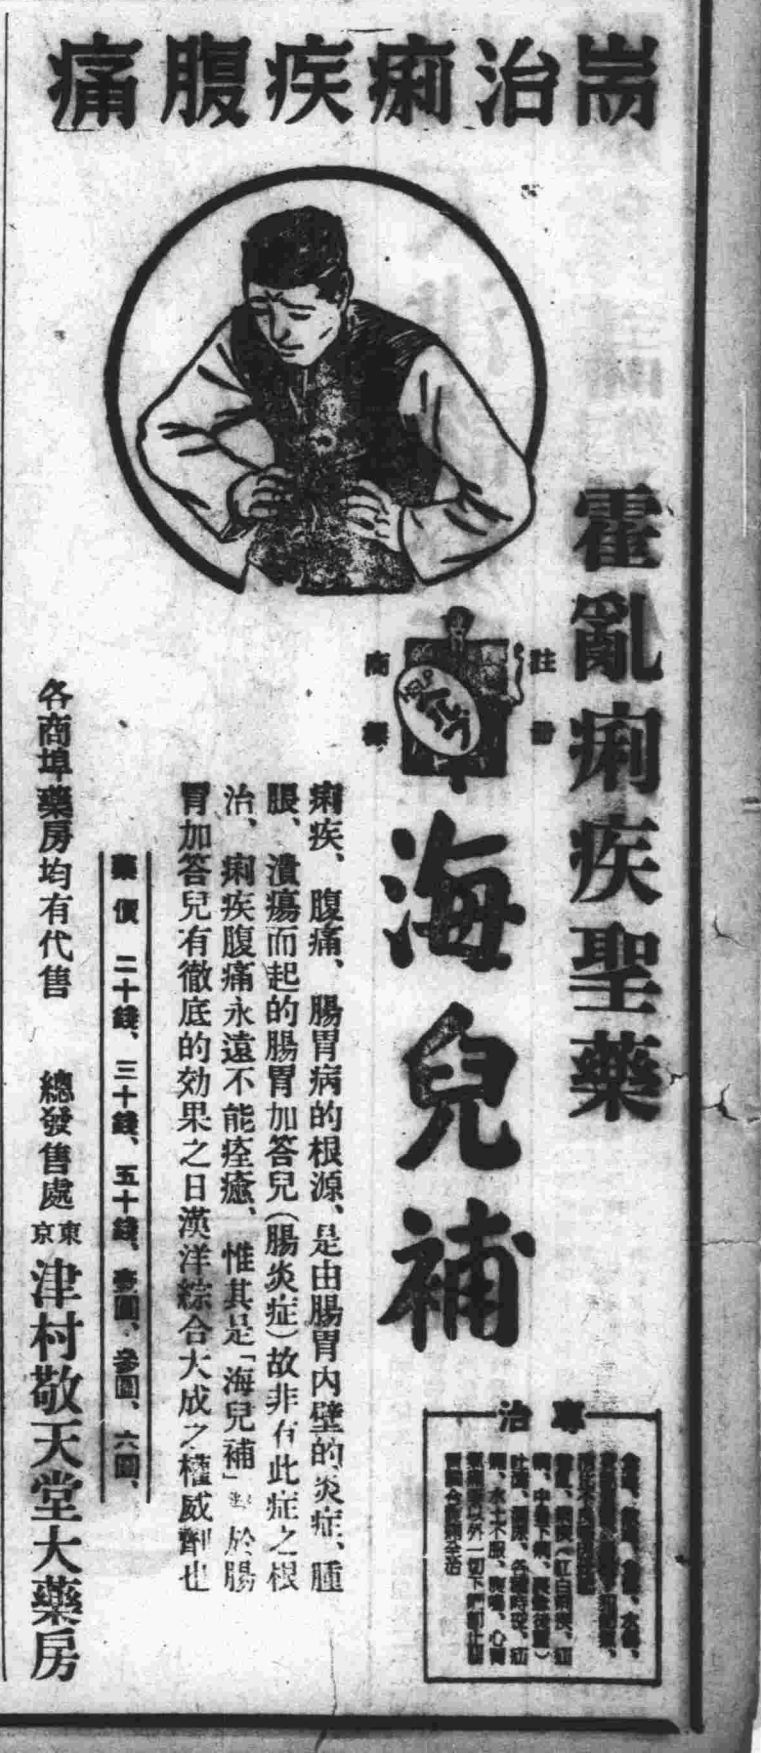 耑治痢疾腹痛
霍亂痢疾聖藥
註冊
商標
海兒補
專治
痢疾、腹痛、腸胃病的根源、是由腸胃內壁的炎症、腫
脹、潰瘍而起的腸胃加答兒(腸炎症)故非有此症之根
治、痢疾腹痛永遠不能痊癒、惟其是「海兒補」對於腸
胃加答兒有徹底的効果之日漢洋綜合大成之權威劑也
藥價 二十錢、三十錢、五十錢、壹圓、叁圓、六圓、
各商埠藥房均有代售 總發售處 東京 津村敬天堂大藥房